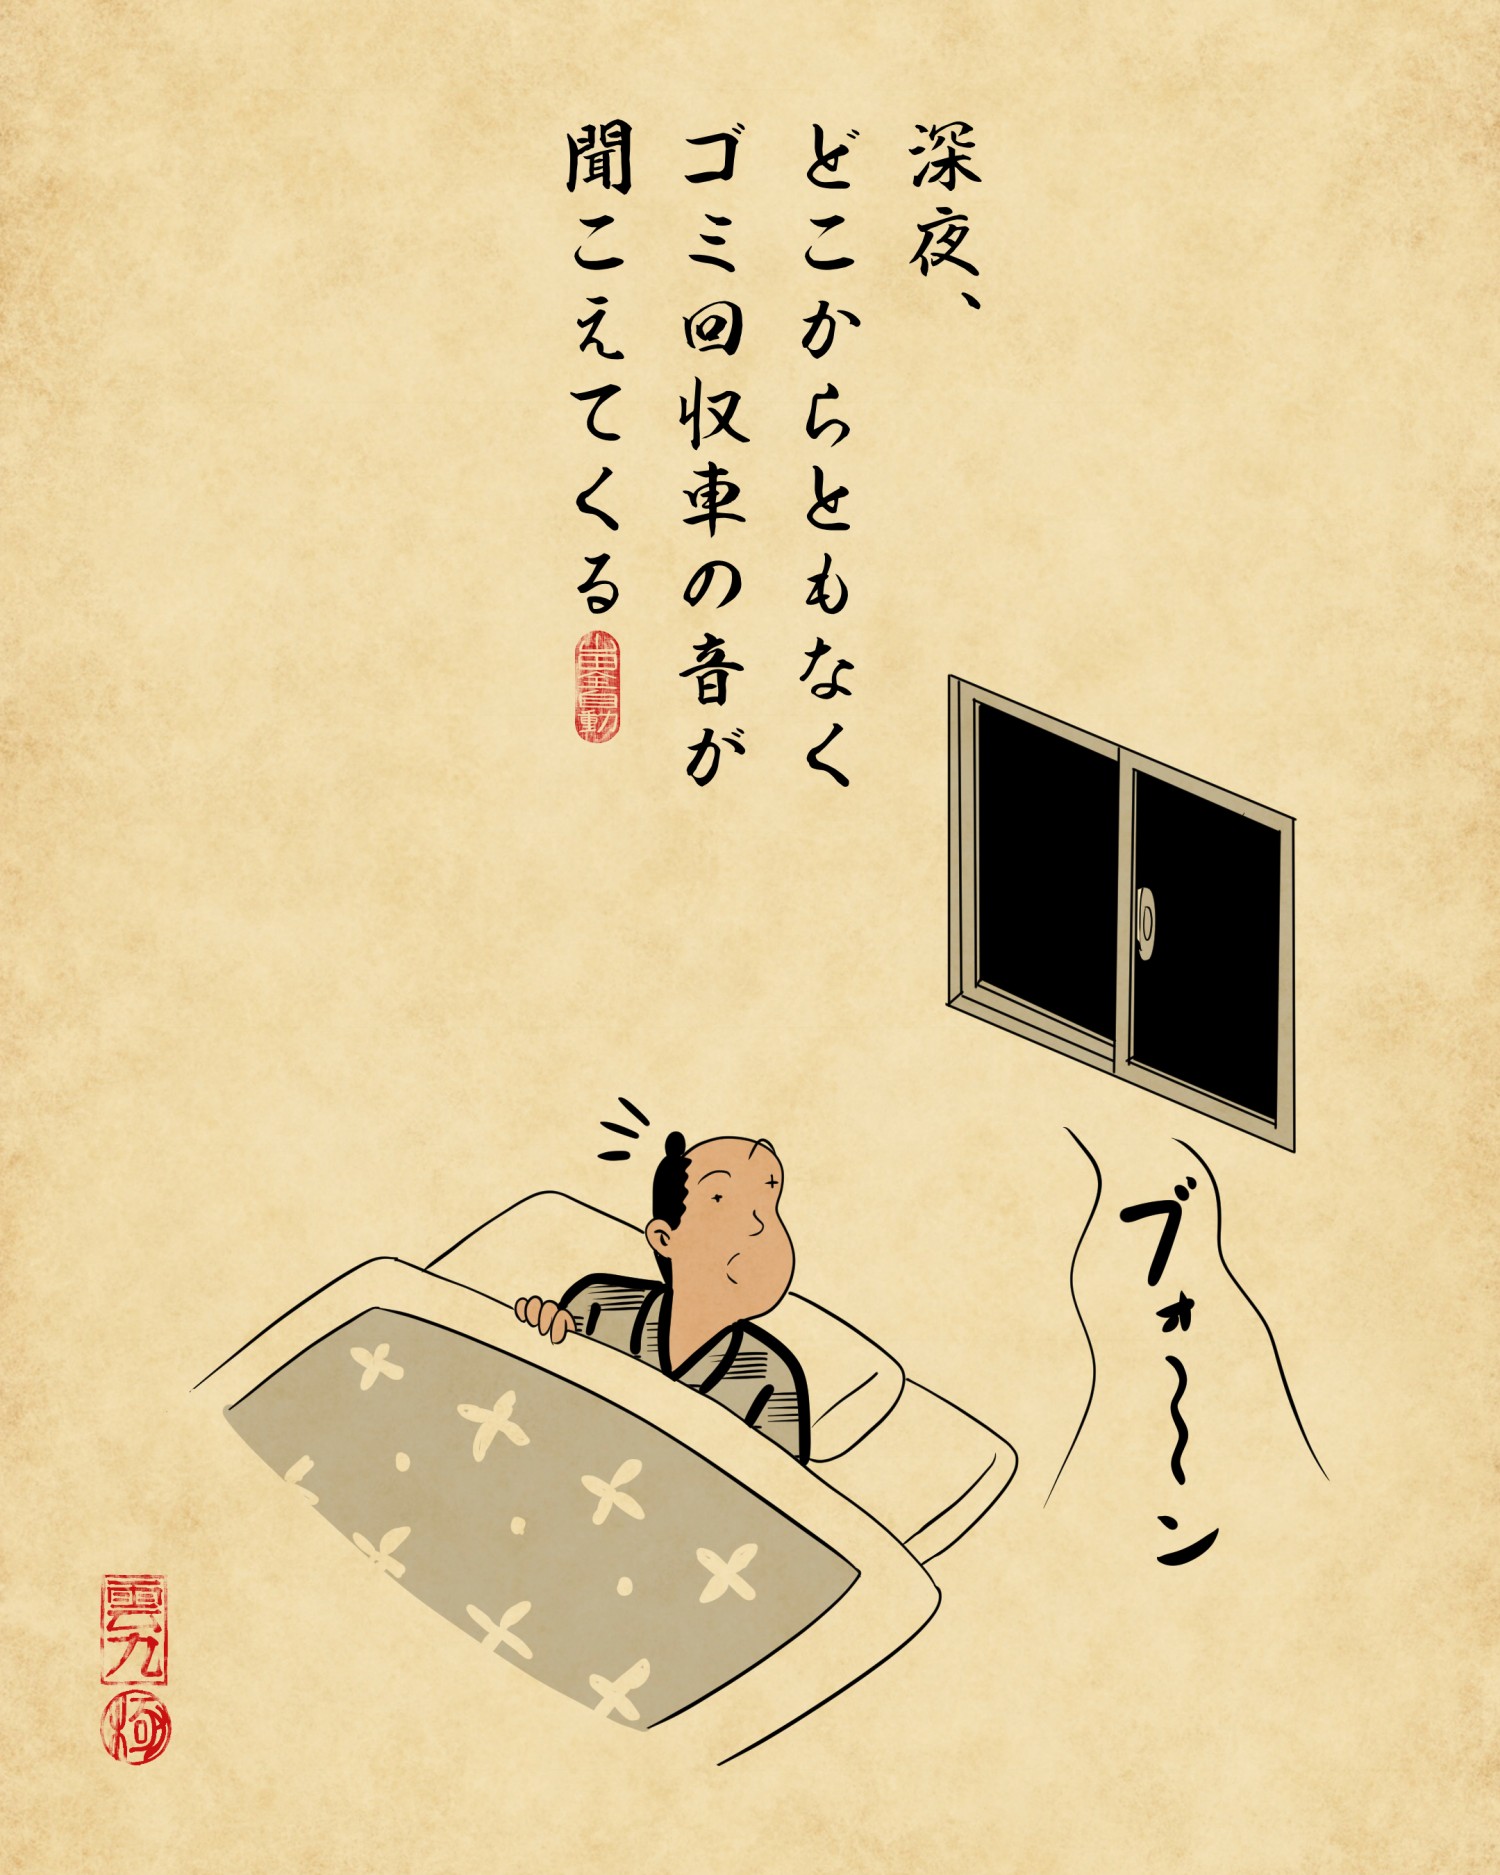 深夜、
どこからともなく
ゴミ回収車の音が
聞こえてくる
ブォ〜ン
雲九
極